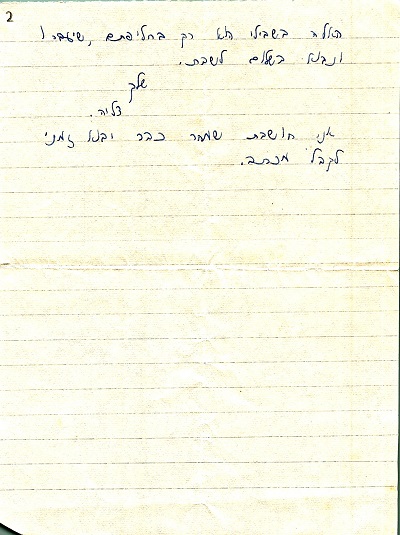 2
האלה בשבילי הא רק בחליפתם, שיעברו
ונבוא בשלום לשבת.
שלך
דליה.
אני חושבת שמחר כבר יבוא זמני
לקבל מכתב.